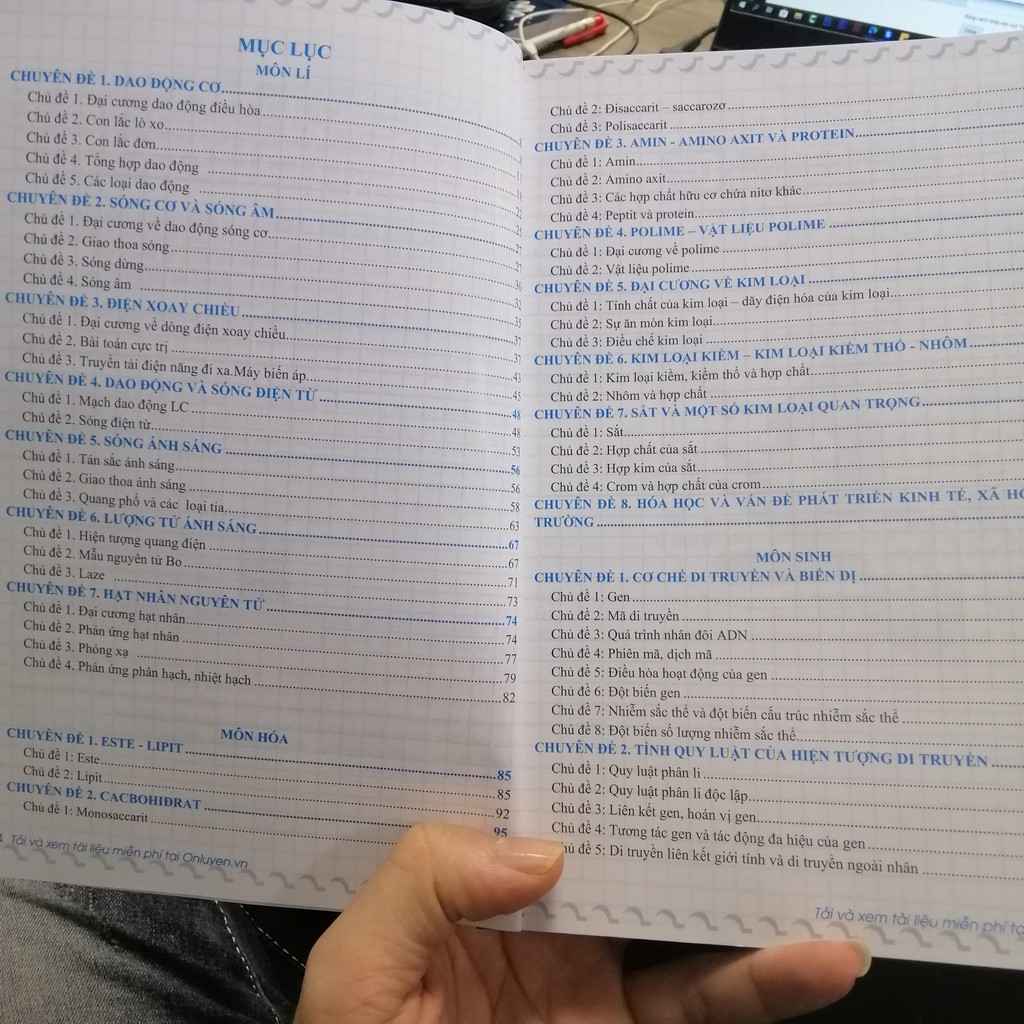 MỤC LỤC
MÔN LÍ
CHUYÊN ĐỀ 1. DAO ĐỘNG CƠ
Chủ đề 1. Đại cương dao động điều hòa
Chủ đề 2. Con lắc lò xo
Chủ đề 3. Con lắc đơn
Chủ đề 4. Tổng hợp dao động
Chủ đề 5. Các loại dao động
CHUYÊN ĐỀ 2. SÓNG CƠ VÀ SÓNG ÂM
Chủ đề 1. Đại cương về dao động sóng cơ
Chủ đề 2. Giao thoa sóng
Chủ đề 3. Sóng dừng
Chủ đề 4. Sóng âm
CHUYÊN ĐỀ 3. ĐIỆN XOAY CHIỀU
Chủ đề 1. Đại cương về dòng điện xoay chiều
Chủ đề 2. Bài toán cực trị
Chủ đề 3. Truyền tải điện năng đi xa.Máy biến áp
CHUYÊN ĐỀ 4. DAO ĐỘNG VÀ SÓNG ĐIỆN TỪ 48
Chủ đề 1. Mạch dao động LC 48
Chủ đề 2. Sóng điện từ 53
CHUYÊN ĐỀ 5. SÓNG ÁNH SÁNG 56
Chủ đề 1. Tán sắc ánh sáng 56
Chủ đề 2. Giao thoa ánh sáng 58
Chủ đề 3. Quang phổ và các loại tia 63
CHUYÊN ĐỀ 6. LƯỢNG TỬ ÁNH SÁNG 67
Chủ đề 1. Hiện tượng quang điện 67
Chủ đề 2. Mẫu nguyên tử Bo 71
Chủ đề 3. Laze 73
CHUYÊN ĐỀ 7. HẠT NHÂN NGUYÊN TỬ 74
Chủ đề 1. Đại cương hạt nhân 74
Chủ đề 2. Phản ứng hạt nhân 77
Chủ đề 3. Phóng xạ 79
Chủ đề 4. Phản ứng phân hạch, nhiệt hạch 82
MÔN HÓA
CHUYÊN ĐỀ 1. ESTE - LIPIT 85
Chủ đề 1: Este 85
Chủ đề 2: Lipit 92
CHUYÊN ĐỀ 2. CACBOHIĐRAT 95
Chủ đề 1: Monosaccarit
Tải và xem tài liệu miễn phí tại Onluyen.vn
Chủ đề 2: Đisaccarit – saccarozơ
Chủ đề 3: Polisaccarit
CHUYÊN ĐỀ 3. AMIN - AMINO AXIT VÀ PROTEIN
Chủ đề 1: Amin
Chủ đề 2: Amino axit
Chủ đề 3: Các hợp chất hữu cơ chứa nitơ khác
Chủ đề 4: Peptit và protein
CHUYÊN ĐỀ 4. POLIME – VẬT LIỆU POLIME
Chủ đề 1: Đại cương về polime
Chủ đề 2: Vật liệu polime
CHUYÊN ĐỀ 5. ĐẠI CƯƠNG VỀ KIM LOẠI
Chủ đề 1: Tính chất của kim loại – dãy điện hóa của kim loại
Chủ đề 2: Sự ăn mòn kim loại
Chủ đề 3: Điều chế kim loại
CHUYÊN ĐỀ 6. KIM LOẠI KIỀM – KIM LOẠI KIỀM THỔ - NHÔM
Chủ đề 1: Kim loại kiềm, kiềm thổ và hợp chất
Chủ đề 2: Nhôm và hợp chất
CHUYÊN ĐỀ 7. SẮT VÀ MỘT SỐ KIM LOẠI QUAN TRỌNG
Chủ đề 1: Sắt
Chủ đề 2: Hợp chất của sắt
Chủ đề 3: Hợp kim của sắt
Chủ đề 4: Crom và hợp chất của crom
CHUYÊN ĐỀ 8. HÓA HỌC VÀ VẤN ĐỀ PHÁT TRIỂN KINH TẾ, XÃ
TRƯỜNG
MÔN SINH
CHUYÊN ĐỀ 1. CƠ CHẾ DI TRUYỀN VÀ BIẾN DỊ
Chủ đề 1: Gen
Chủ đề 2: Mã di truyền
Chủ đề 3: Quá trình nhân đôi ADN
Chủ đề 4: Phiên mã, dịch mã
Chủ đề 5: Điều hòa hoạt động của gen
Chủ đề 6: Đột biến gen
Chủ đề 7: Nhiễm sắc thể và đột biến cấu trúc nhiễm sắc thể
Chủ đề 8: Đột biến số lượng nhiễm sắc thể
CHUYÊN ĐỀ 2. TÍNH QUY LUẬT CỦA HIỆN TƯỢNG DI TRUYỀN
Chủ đề 1: Quy luật phân li
Chủ đề 2: Quy luật phân li độc lập
Chủ đề 3: Liên kết gen, hoán vị gen
Chủ đề 4: Tương tác gen và tác động đa hiệu của gen
đề 5: Di truyền liên kết giới tính và di truyền ngoài nhân
Tải và xem tài liệu miễn phí